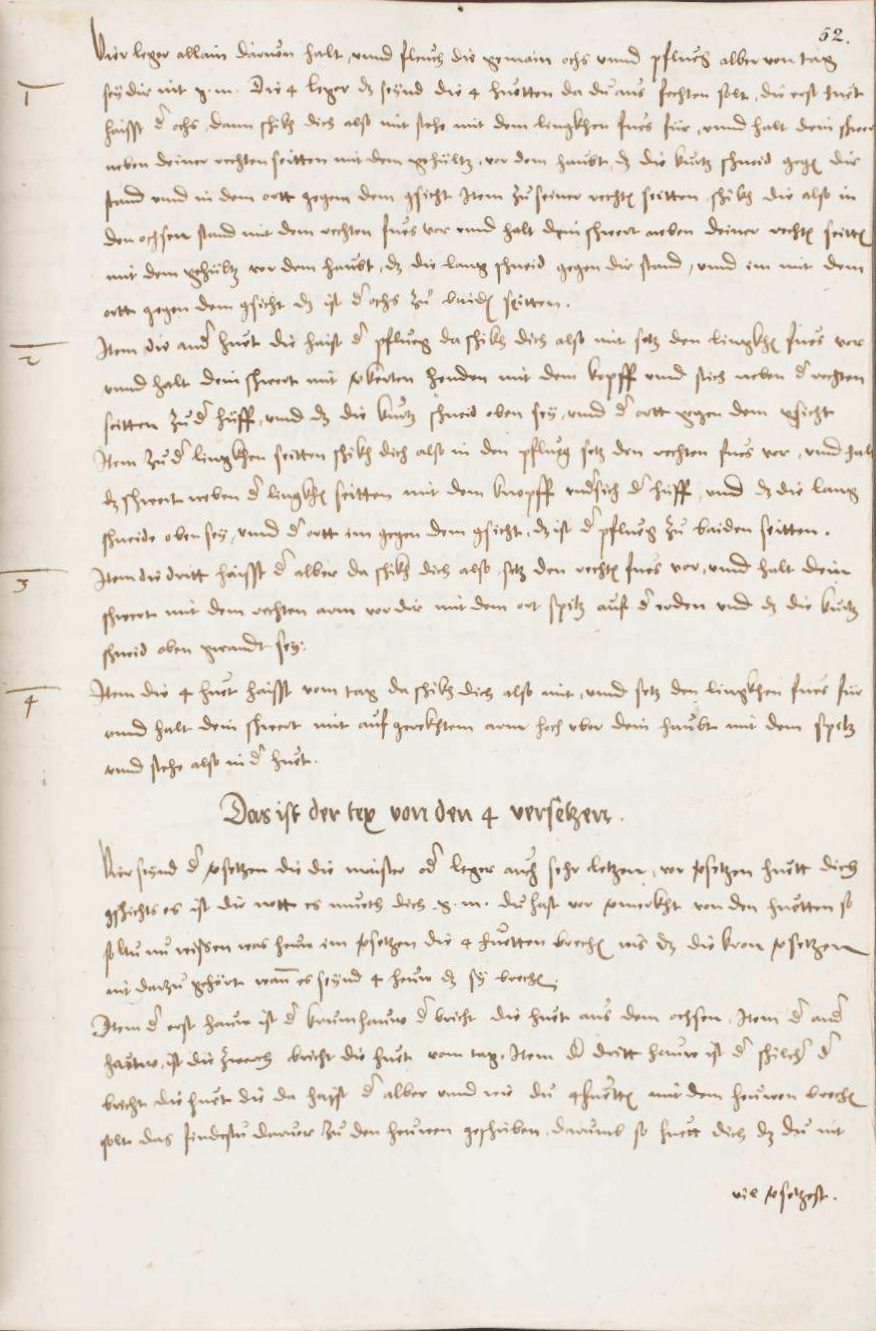 52.
Vier leger allain darvon halt, unnd fleuch die gemain ochs unnd pflueg alber von tag
sey dir nit g. m. Die 4 leger dz seynd die 4 huetten da du aus fechten solt, die erst huet
1
haisst d ochs, dann schikh dich also mit stehe mit dem lingkhen fues für, unnd halt dein schwert
neben deiner rechten seitten mit dem gehültz, vor dem haubt, dz die kurtz schneid gegen dir
stand und in dem ortt gegem dem gsicht Item zu seiner rechten seitten schikh die also in
den ochsen stand mit dem rechten fues vor unnd halt dein schwert neben deiner rechten seitten
mit dem gehültz vor dem haubt, dz die lang schneid gegen dir stand, unnd im mit dem
ortt gegen dem gsicht dz ist d ochs zu baiden seitten.
2
Item die and huet die haist d pflueg da schikh dich also mit setz den lingkhen fues vor
unnd halt dein schwert mit verkerten henden mit dem kopff und sich neben d rechten
seitten zu d hüff, unnd dz die kurtz schneid oben sey, unnd d ortt gegen dem gsicht
Item zu d lingkhen seitten schikh dich also in den pflueg setz den rechten fues vor, unnd halt
dz schwert neben d lingkhen seitten mit dem knopff undsich d hüff, unnd dz die lang
schneide oben sey, unnd d ortt im gegen dem gsicht, dz ist d pflueg zu baiden seitten.
3
Item die dritt haisst d alber da schikh dich also, setz den rechten fues vor, unnd halt dein
schwert mit dem rechten arm vor dir mit dem ort spitz auf d erden und dz die kurtz
schneid oben gwandt sey.
4
Item die 4 huet haisst vom tag da schikh dich also mit, unnd setz den lingkhen fues für
unnd halt dein schwert mit auf gerekhtem arm hoch uber dein haubt mit dem spitz
unnd stehe also in d huet.
Das ist der tex von den 4 versetzen.
Vier seynd d versetzen die die maister od leger auch sehr letzen, vor versetzen huett dich
gschichts es ist dir nott es mueth dich g. m. du hast vor vermerkht von den huetten so
soltu nu wissen was heuw im versetzen die 4 huetten brechen wis dz die kron versetzen
nit darzu gehört wann es seynd 4 heuw dz sy brechen
Item d erst hauw ist d krumhauw d bricht die huet aus dem ochsen, Item d and
hauw, ist die zwerch bricht die huet vom tag. Item d dritt hauw ist d schilch d
bricht die huet die da haist d alber unnd wie du 4 huetten mit dem heuwen brechen
solt das findestu darvor zu den heuwen geschriben, darumb so huett dich dz du nit
vil versetzest.